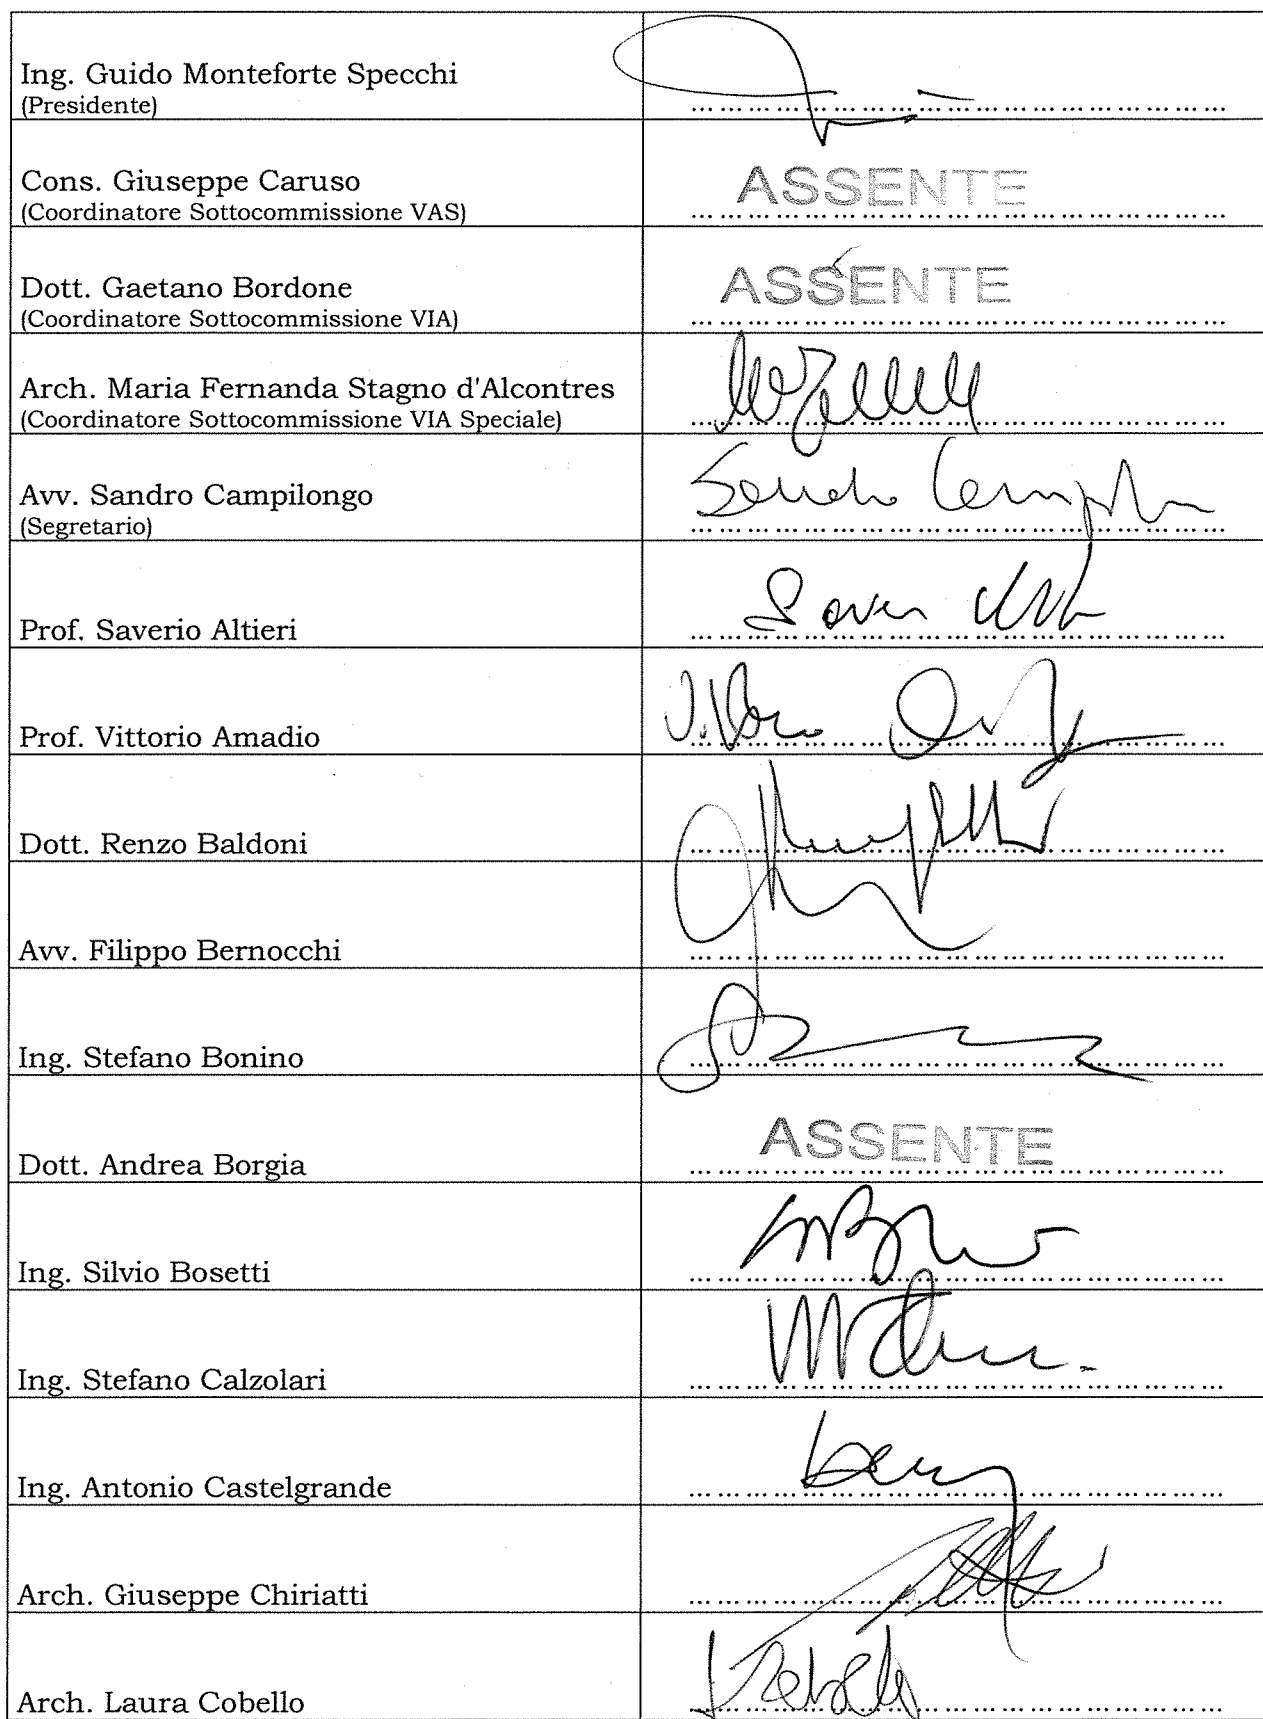 Ing. Guido Monteforte Specchi
(Presidente)
Cons. Giuseppe Caruso
(Coordinatore Sottocommissione VAS)
ASSENTE
Dott. Gaetano Bordone
(Coordinatore Sottocommissione VIA)
ASSENTE
Arch. Maria Fernanda Stagno d'Alcontres
(Coordinatore Sottocommissione VIA Speciale)
Avv. Sandro Campilongo
(Segretario)
Prof. Saverio Altieri
Prof. Vittorio Amadio
Dott. Renzo Baldoni
Avv. Filippo Bernocchi
Ing. Stefano Bonino
Dott. Andrea Borgia
ASSENTE
Ing. Silvio Bosetti
Ing. Stefano Calzolari
Ing. Antonio Castelgrande
Arch. Giuseppe Chiriatti
Arch. Laura Cobello